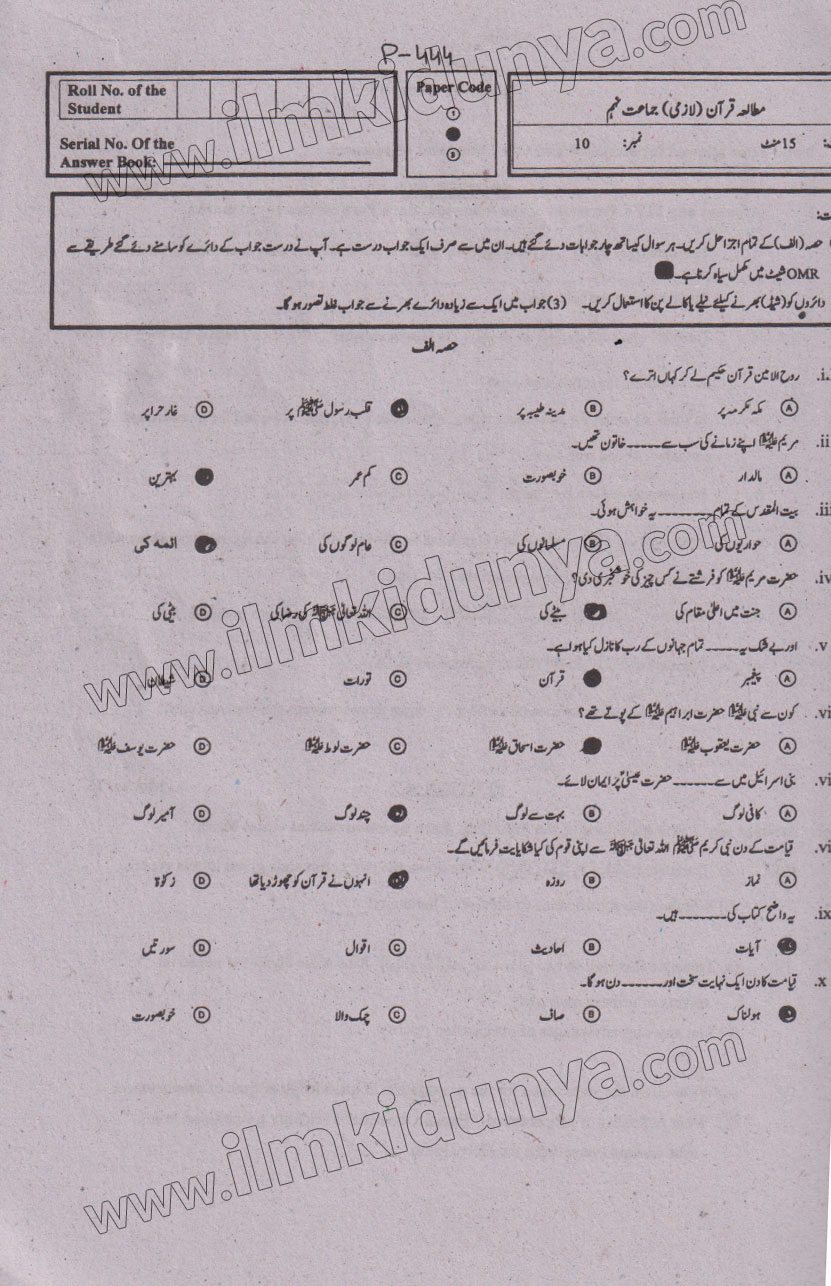 P-444
Roll No. of the
Student
Serial No. Of the
Answer Book:
Paper Code
1
3
مطالعہ قرآن (لازمی) جماعت نہم
15 منٹ نمبر: 10
حصہ (الف) کے تمام اجزا حل کریں۔ ہر سوال کیساتھ چار جوابات دئے گئے ہیں۔ ان میں سے صرف ایک جواب درست ہے۔ آپ نے درست جواب کے دائرے کو سامنے دئے گئے طریقے سے
OMR شیٹ میں مکمل سیاہ کرنا ہے۔
دائروں کو (شیڈ) بھرنے کیلئے نیلے یا کالے پن کا استعمال کریں۔ (3) جواب میں ایک سے زیادہ دائرے بھرنے سے جواب غلط تصور ہوگا۔
حصہ الف
i. روح الامین قرآن حکیم لے کر کہاں اترے؟
A مکہ مکرمہ پر B مدینہ طیبہ پر قلب رسول ﷺ پر D غار حرا پر
ii مریم علیہا السلام اپنے زمانے کی سب سے ----- خاتون تھیں۔
A مالدار B خوبصورت C کم عمر بہترین
iii بیت المقدس کے تمام -------- یہ خواہش ہوئی۔
A حواریوں کی B مسلمانوں کی C عام لوگوں کی ائمہ کی
iv حضرت مریم علیہا السلام کو فرشتے نے کس چیز کی خوشخبری دی؟
A جنت میں اعلیٰ مقام کی بیٹے کی C اللہ تعالیٰ کی رضا کی D بیٹی کی
v. اور بے شک یہ ----- تمام جہانوں کے رب کا نازل کیا ہوا ہے۔
A پیغمبر قرآن C تورات D شیطان
vi کون سے نبی علیہ السلام حضرت ابراہیم علیہ السلام کے پوتے تھے؟
A حضرت یعقوب علیہ السلام حضرت اسحاق علیہ السلام C حضرت لوط علیہ السلام D حضرت یوسف علیہ السلام
vi بنی اسرائیل میں سے ------- حضرت عیسیٰؑ پر ایمان لائے۔
A کافی لوگ B بہت سے لوگ چند لوگ D آمیر لوگ
vi قیامت کے دن نبی کریم ﷺ اللہ تعالیٰ سے اپنی قوم کی کیا شکایت فرمائیں گے۔
A نماز B روزہ انہوں نے قرآن کو چھوڑ دیا تھا D زکوٰۃ
ix یہ واضح کتاب کی ------- ہیں۔
آیات B احادیث C اقوال D سورتیں
x. قیامت کا دن ایک نہایت سخت اور ------ دن ہوگا۔
ہولناک B صاف C چمک والا D خوبصورت
www.ilmkidunya.com
www.ilmkidunya.com
www.ilmkidunya.com